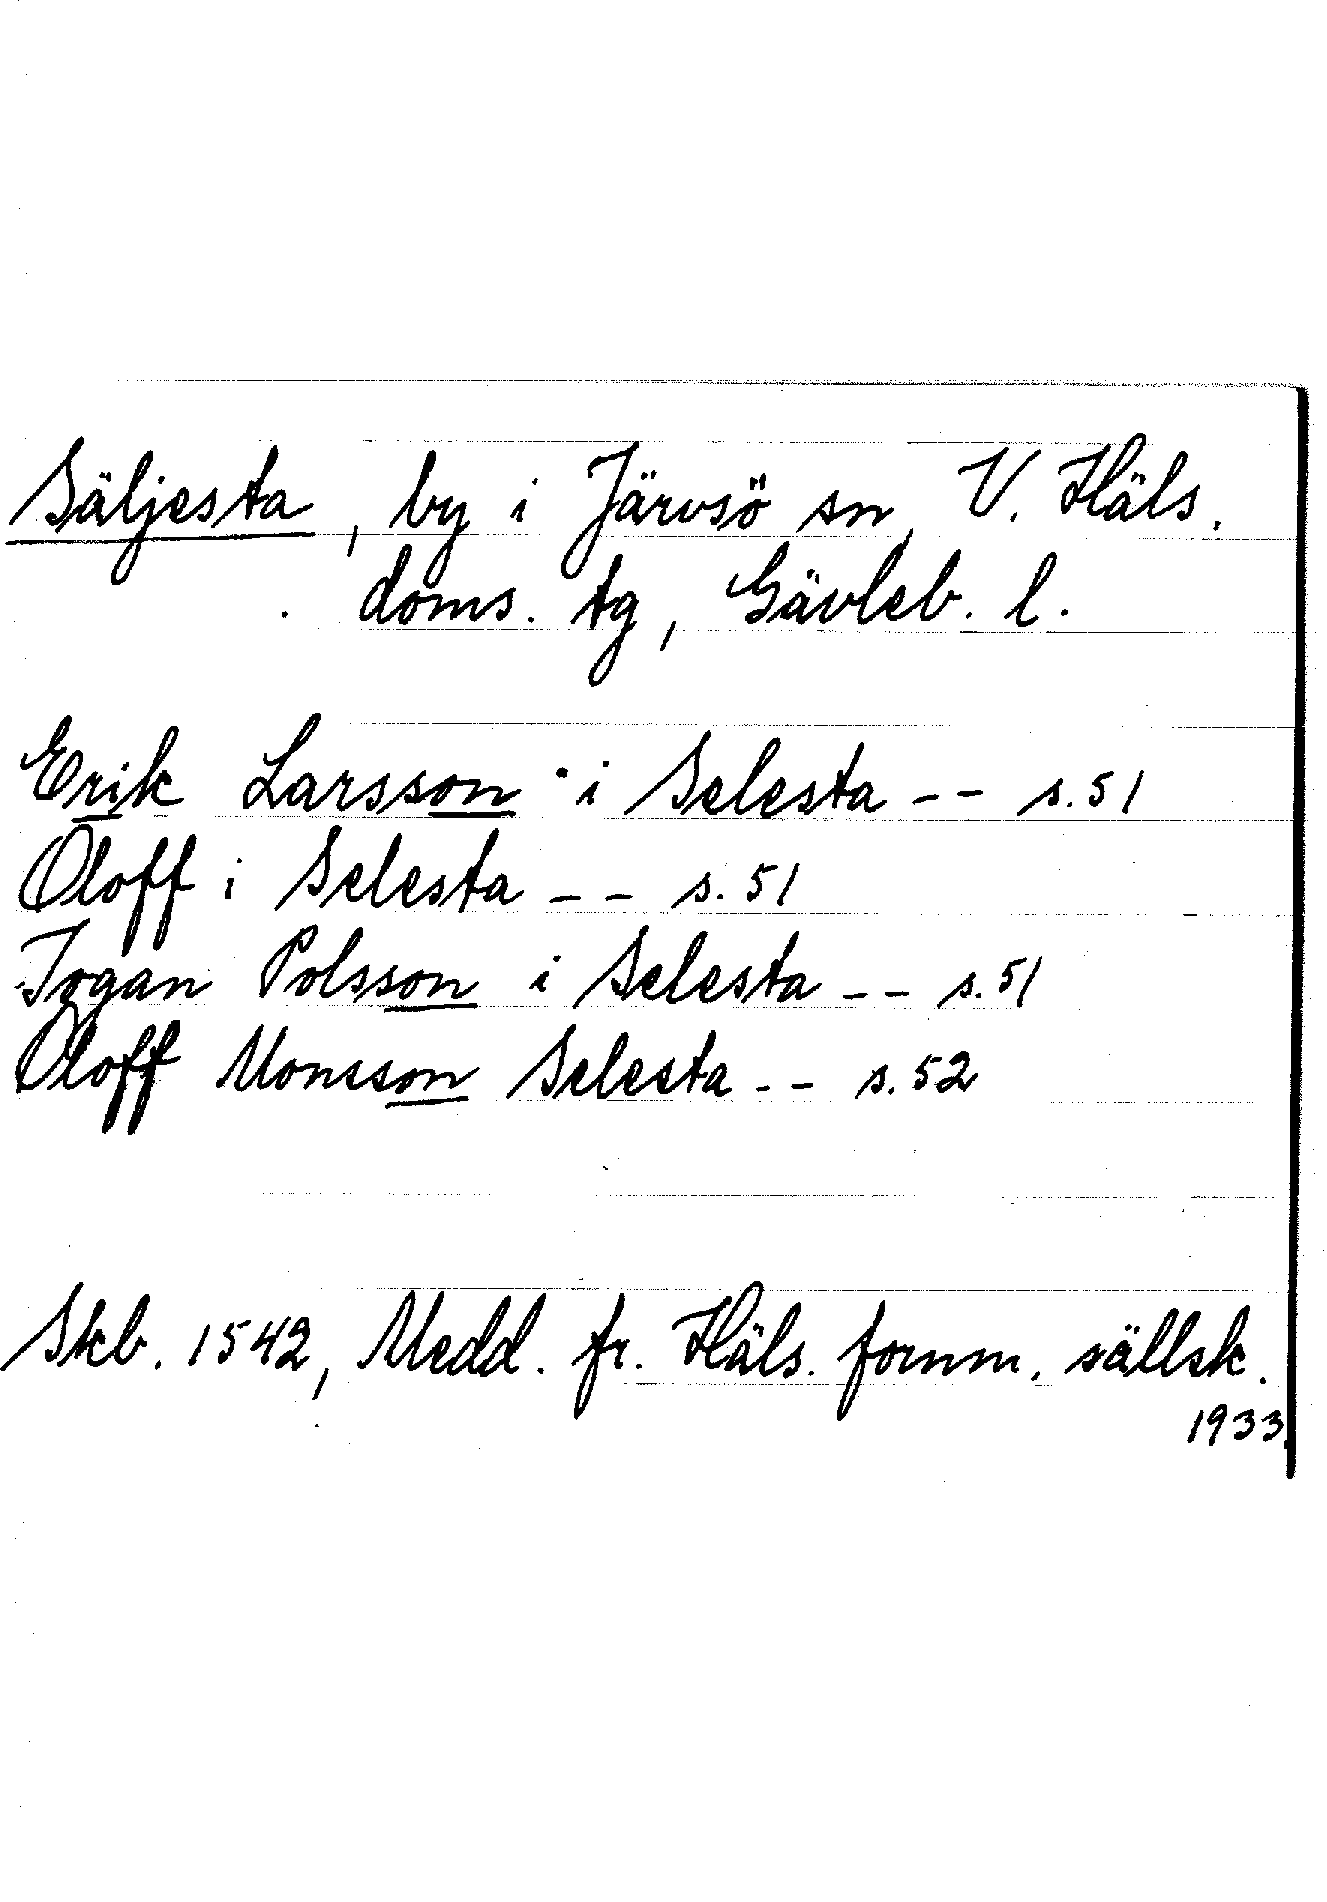 Säljesta, by i Järvsö sn, V. Häls.
doms. tg, Gävleb. l.
Erik Larsson i Selesta -- s. 51
Oloff i Selesta -- s. 51
Jogan Polsson i Selesta -- s. 51
Oloff Monsson Selesta -- s. 52
Skb. 1542, Medd. fr. Häls. fornm. sällsk.
1933.